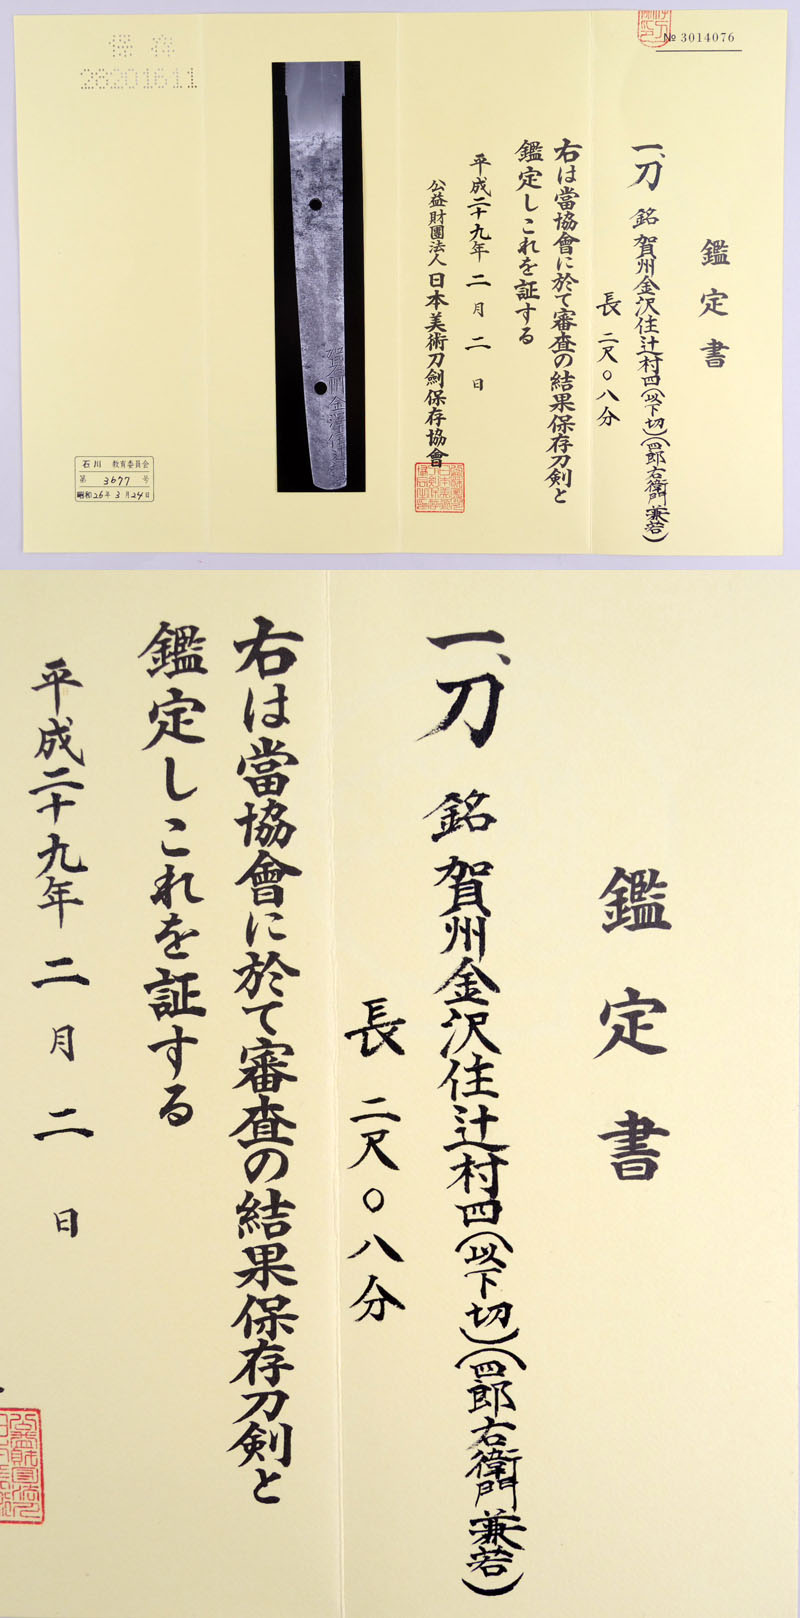 № 3014076
鑑定書
一、刀 銘 賀州金沢住辻村四(以下切)(四郎右衛門兼若)
長 二尺〇八分
右は當協會に於て審査の結果保存刀剣と
鑑定しこれを証する
平成二十九年 二月 二日
公益財團法人 日本美術刀劍保存協會
賀州金澤住
保存
28201611
石川 教育委員会
第 3677 号
昭和26年3月24日
鑑定書
一、刀 銘 賀州金沢住辻村四(以下切)(四郎右衛門兼若)
長 二尺〇八分
右は當協會に於て審査の結果保存刀剣と
鑑定しこれを証する
平成二十九年 二月 二日